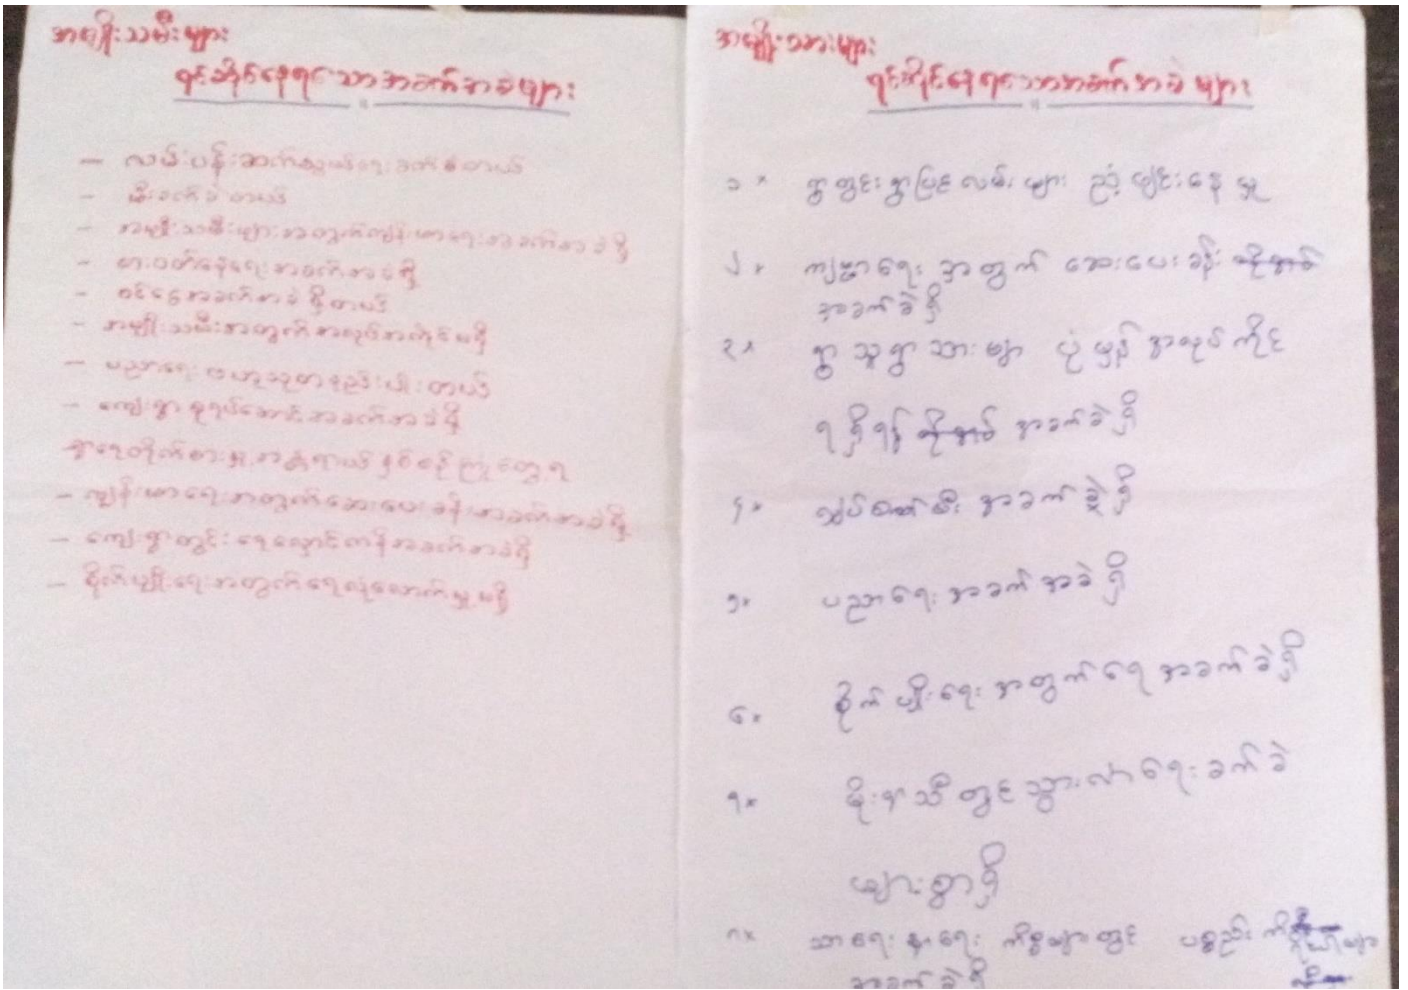 အမျိုးသမီးများ
ရင်ဆိုင်နေရသောအခက်အခဲများ
– လမ်းပန်းဆက်သွယ်ရေးခက်ခဲတယ်
– မီးခက်ခဲတယ်
– အမျိုးသမီးများအတွက်ကျန်းမာရေးအခက်အခဲရှိ
– စားဝတ်နေရေးအခက်အခဲရှိ
– ဝင်ငွေအခက်အခဲရှိတယ်
– အမျိုးသမီးအတွက်အလုပ်အကိုင်မရှိ
– ပညာရေး ဗဟုသုတနည်းပါးတယ်
– ကျေးရွာ အခက်အခဲရှိ
ရေတိုက်စားမှုအန္တရာယ်နှစ်စဉ်ကြုံတွေ့ရ
– ကျန်းမာရေးအတွက်ဆေးပေးခန်းအခက်အခဲရှိ
– ကျေးရွာတွင်းရေလှောင်ကန်အခက်အခဲရှိ
– စိုက်ပျိုးရေးအတွက်ရေလုံလောက်မှုမရှိ
အမျိုးသားများ
ရင်ဆိုင်နေရသောအခက်အခဲများ
၁× ရွာတွင်းရွာပြင်လမ်းများ ညံ့ဖျင်းနေမှု
၂× ကျန်းမာရေးအတွက် ဆေးပေးခန်း
အခက်ခဲရှိ
၃× ရွာသူရွာသားများ ပုံမှန်အလုပ်ကိုင်
ရရှိရန် အခက်ခဲရှိ
၄× လျှပ်စစ်မီး အခက်ခဲရှိ
၅× ပညာရေးအခက်အခဲရှိ
၆× စိုက်ပျိုးရေးအတွက်ရေအခက်ခဲရှိ
၇× မိုးရာသီတွင်သွားလာရေးခက်ခဲ
များစွာရှိ
၈× သာရေးနာရေး ကိစ္စများတွင် ပစ္စည်း
အခက်ခဲရှိ